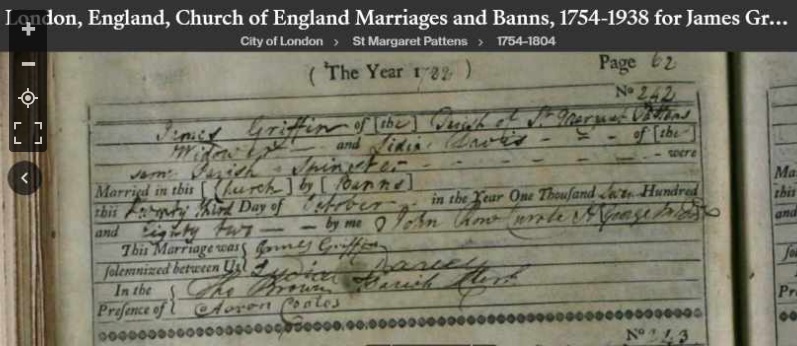 London, England, Church of England Marriages and Banns, 1754-1938 for James Gr...
City of London › St Margaret Pattens › 1754-1804
( The Year 1782 ) Page 62
No 242
James Griffin of [the] Parish of St Margaret Pattens
Widower and Lidia Davies of [the
same Parish Spinster were
Married in this [Church] by [Banns]
this Twenty third Day of October in the Year One Thousand Seven Hundred
and Eighty two by me John Curate St George
This Marriage was James Griffin
solemnized between Us Lydia
In the Tho Brown Parish Clerk
Presence of Aaron Coales
No 243
Ma
this
and
In
Pre